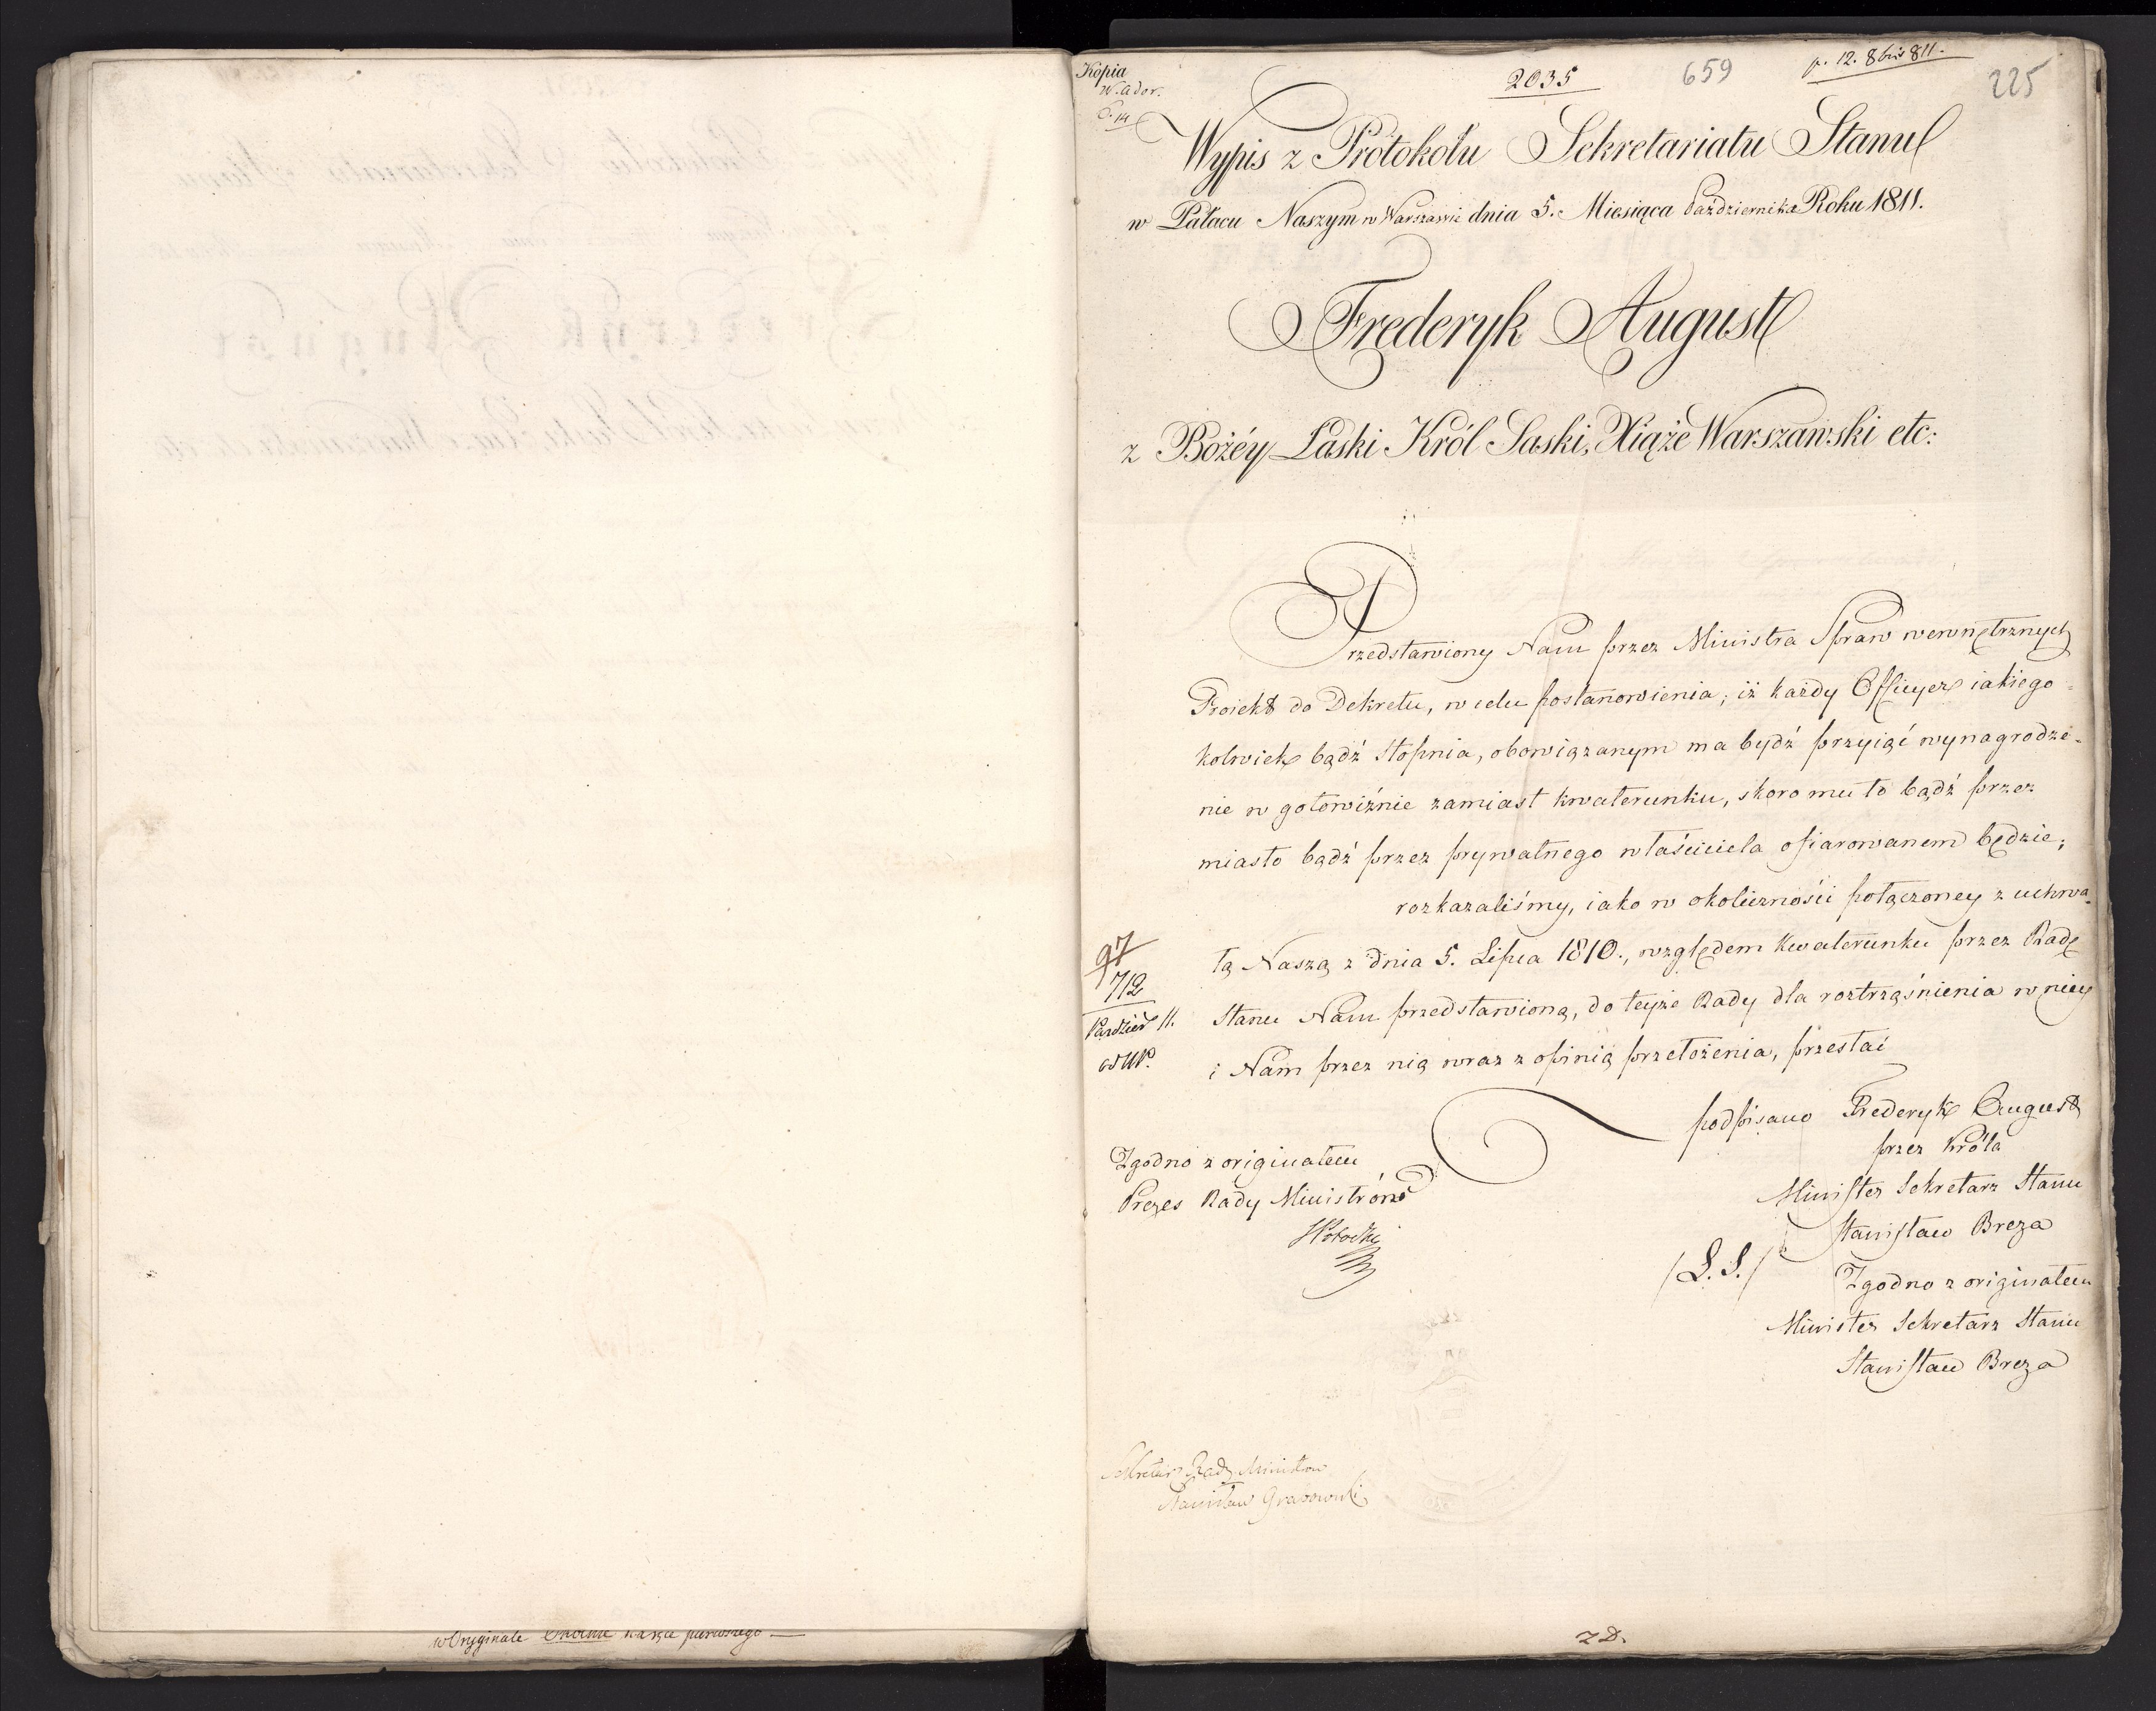 w Oryginale
Kopia
2035
659
p. 12. 8bris 811.
225
Wypis z Protokołu Sekretariatu Stanu
w Pałacu Naszym w Warszawie dnia 5. Miesiąca Października Roku 1811.
Frederyk August
z Bożéy Łaski Król Saski, Xiąże Warszawski etc:
Przedstawiony Nam przez Ministra Spraw wewnętrznych
Proiekt do Dekretu, w celu postanowienia; iż każdy Officyer iakiego-
kolwiek bądź Stopnia, obowiązanym ma bydź przyiąć wynagrodze-
nie w gotowiźnie zamiast kwaterunku, skoro mu to bądź przez
miasto bądź przez prywatnego właściciela ofiarowanem będzie;
rozkazaliśmy, iako w okoliczności połączoney z uchwa-
łą Naszą z dnia 5. Lipca 1810., względem Kwaterunku przez Radę
Stanu Nam przedstawioną, do teyże Rady dla roztrząśnienia w niey
i Nam przez nią wraz z opinią przełożenia, przesłać
97
712
Paździer 11.
podpisano Frederyk August
przez Króla
Minister Sekretarz Stanu
Stanisław Breza
(L.S.)
Zgodno z originałem
Minister Sekretarz Stanu
Stanisław Breza
Zgodno z originałem
Prezes Rady Ministrów
SPotocki
Sekretarz Rady Ministrow
Stanisław Grabowski
ZD.